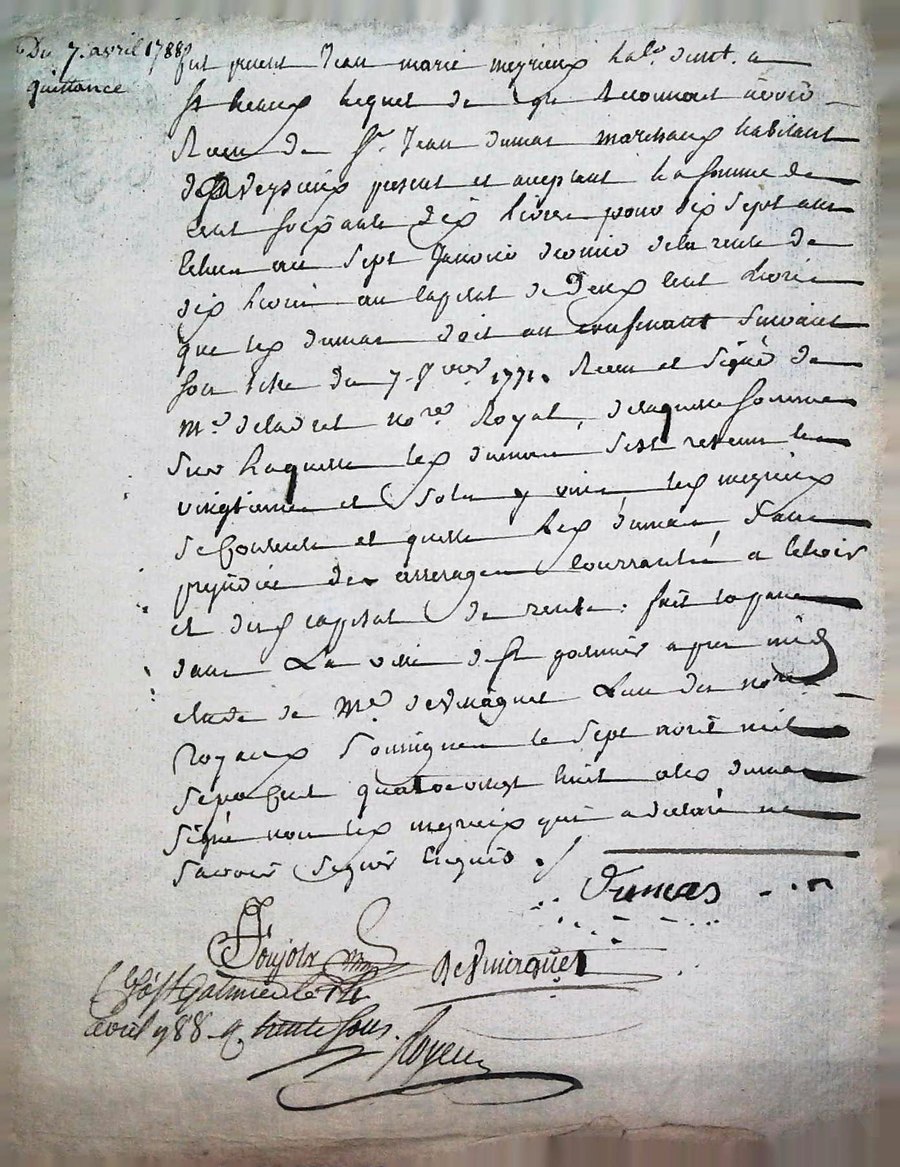 Du 7. avril 1788
quittance
fut present Jean marie meyrieux hab.
St heaux lequel de gré reconnoit avoir
Receu de Sr. Jean dumas marchand habitant
de Veyrieux present et acceptant la somme de
cent soixante dix livres pour dix sept ans
echus au sept Janvier dernier de la rente de
dix livres au capital de Deux cent livres
que led dumas doit au suivant
son titre du 7. 1771. Receu et signé de
Me. delad not re. Royal, de laquelle somme
sur laquelle led dumas s'est retenu les
vingtiemes et sols p livre led meyrieux
se contente et quitte led dumas sans
prejudice des arrerages courrants a echoir
et dud capital de rente. fait et passé
dans la ville de St galmier apres midy
etude de Me. deVuirquet L'un des nores
Royaux soussignes le sept avril mil
sept cent quatre vingt huit et led dumas
signé non led meyrieux qui a declaré ne
savoir signer enquis ./.
Dumas
Poujolx
deVuirquet
à St Galmier le
avril 1788. q. trente sous.
Royer